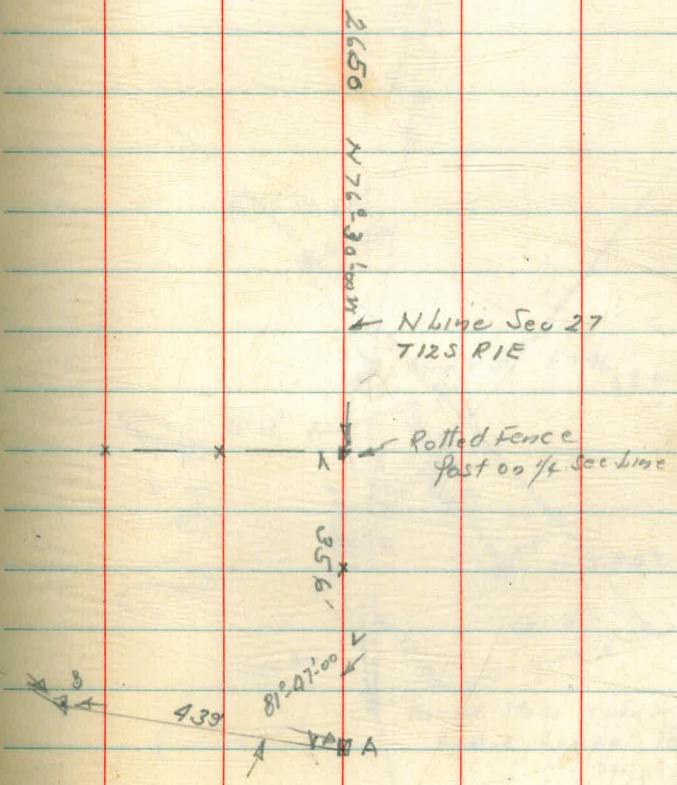 2650 N 76°-30'-00W
N Line Sec 27
T12S R1E
Rotted Fence
Post on 1/4 Sec Line
356'
81°-47'-00
B
439
A